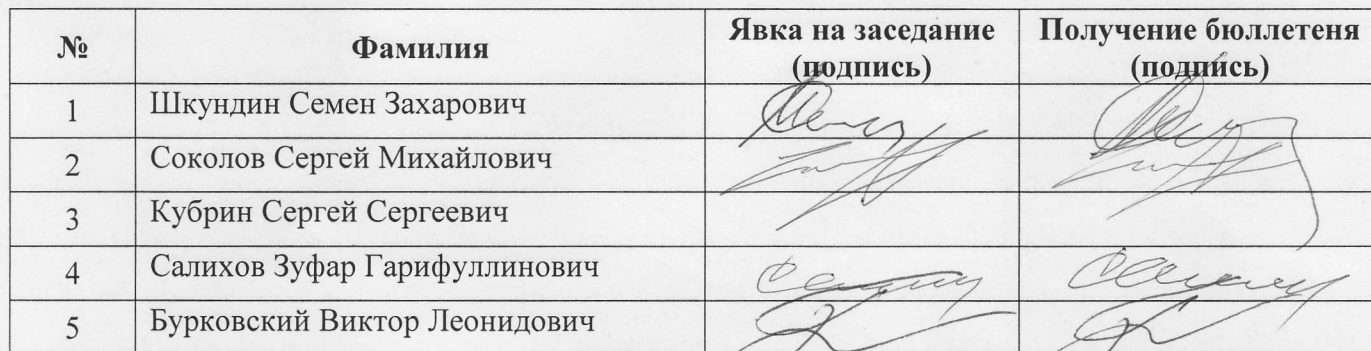 № Фамилия Явка на заседание (подпись) Получение бюллетеня (подпись)
1 Шкундин Семен Захарович
2 Соколов Сергей Михайлович
3 Кубрин Сергей Сергеевич
4 Салихов Зуфар Гарифуллинович
5 Бурковский Виктор Леонидович